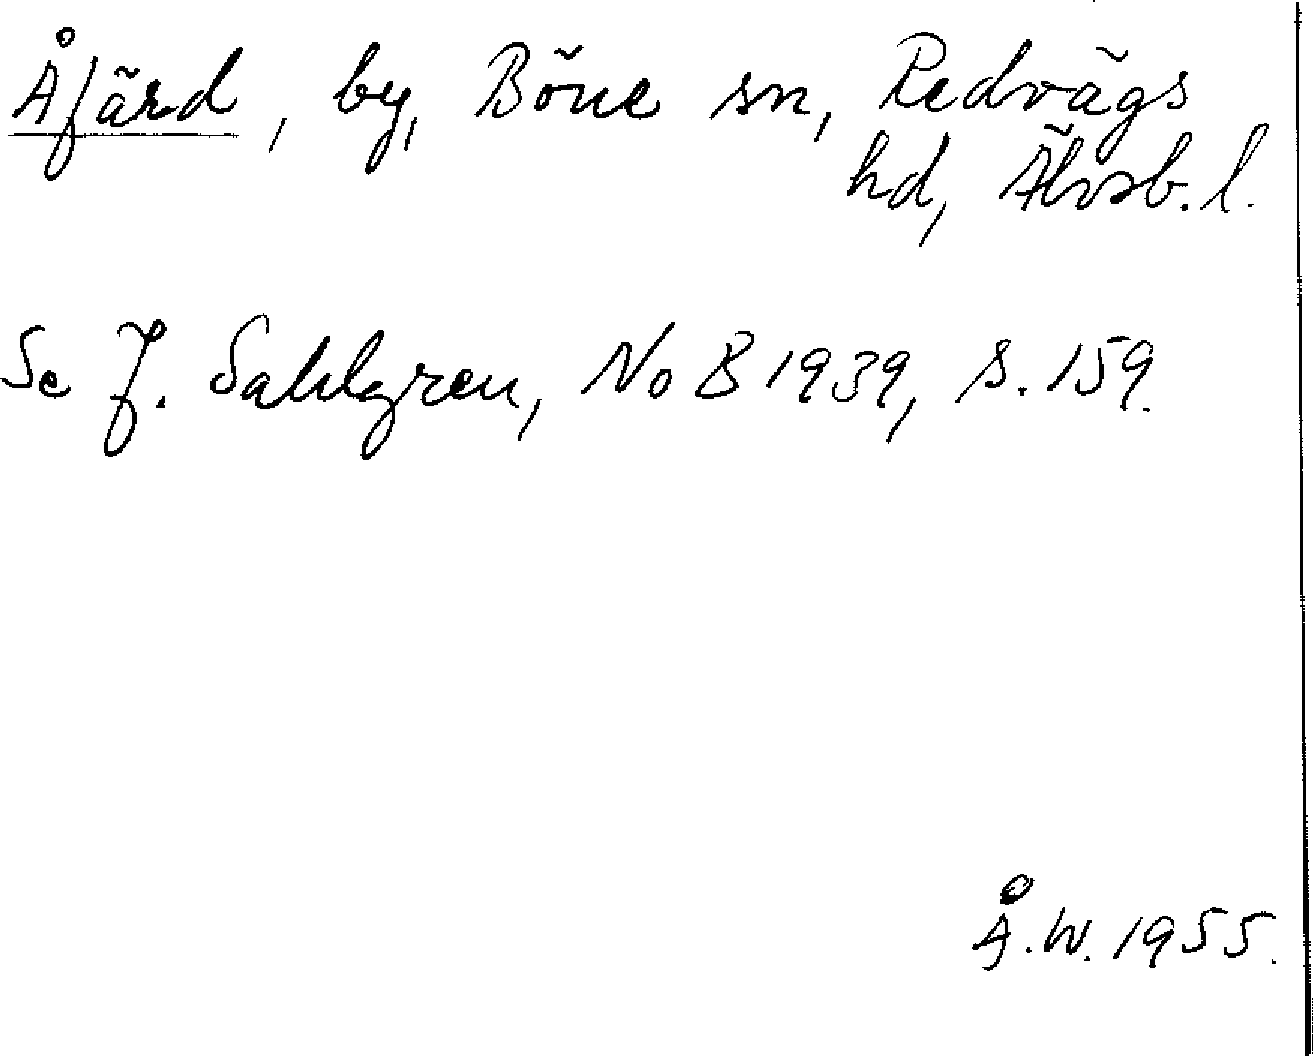 Åfärd, by, Böne sn, Redvägs
hd, Älvsb. l.
Se J. Sahlgren, NoB 1939, s. 159.
Å.W. 1955.